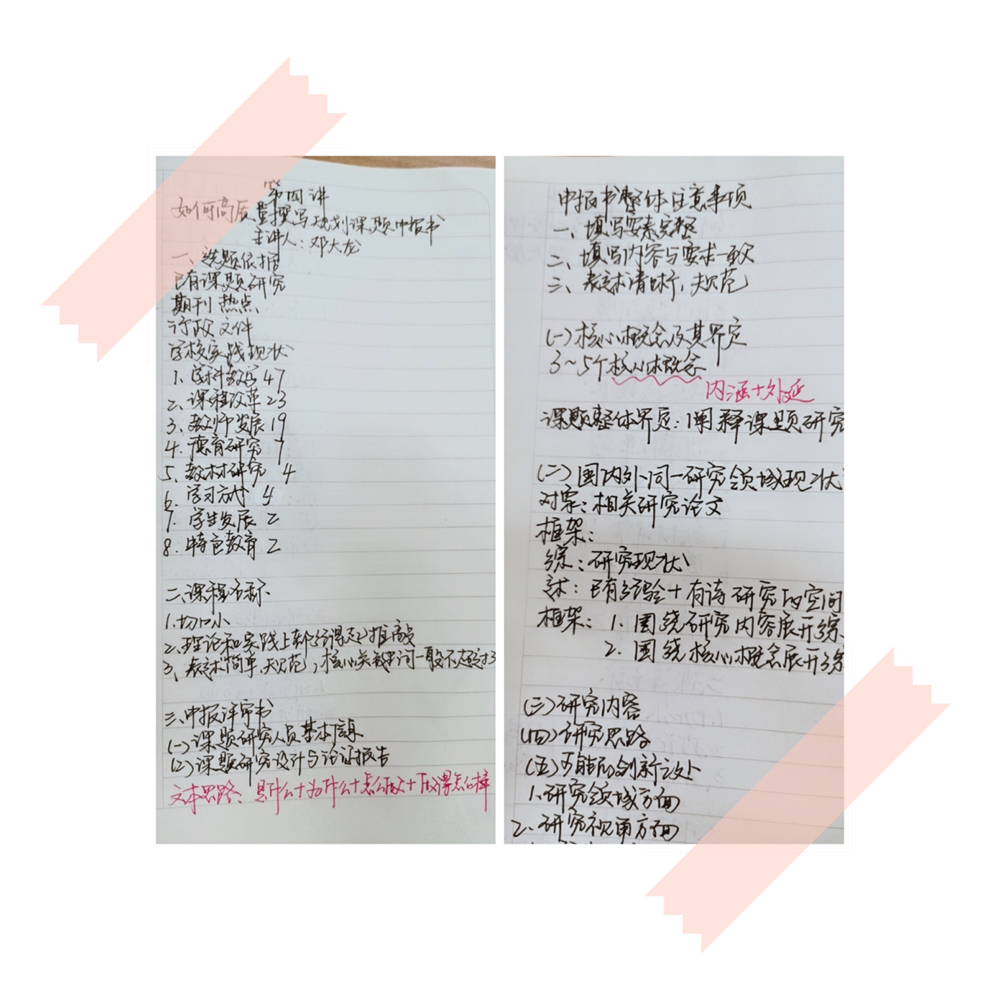 第四讲
如何高质量撰写规划课题申报书
主讲人：邓大龙
一、选题依据
已有课题研究
期刊热点
行政文件
学校实践现状
1. 学科教学 47
2. 课程改革 23
3. 教师发展 19
4. 德育研究 7
5. 教材研究 4
6. 学习方式 4
7. 学生发展 2
8. 特色教育 2
二、课程名称
1. 切口小
2. 理论和实践上都经得起推敲
3、表述简单，规范，核心关键词一般不超过3
三、申报评审书
(一)课题研究人员基本信息
(二)课题研究设计与论证报告
文本思路：是什么+为什么+怎么做+做得怎么样
申报书整体注意事项
一、填写要素完整
二、填写内容与要求一致
三、表述清晰，规范
(一)核心概念及其界定
3~5个核心概念
内涵+外延
课题整体界定：阐释课题研究
(二)国内外同一研究领域现状
对象：相关研究论文
框架：
综：研究现状
述：已有经验+有该研究的空间
框架：1. 围绕研究内容展开综
2. 围绕核心概念展开综
(三)研究内容
(四)研究思路
(五)可能的创新之处
1. 研究领域方面
2. 研究视角方面